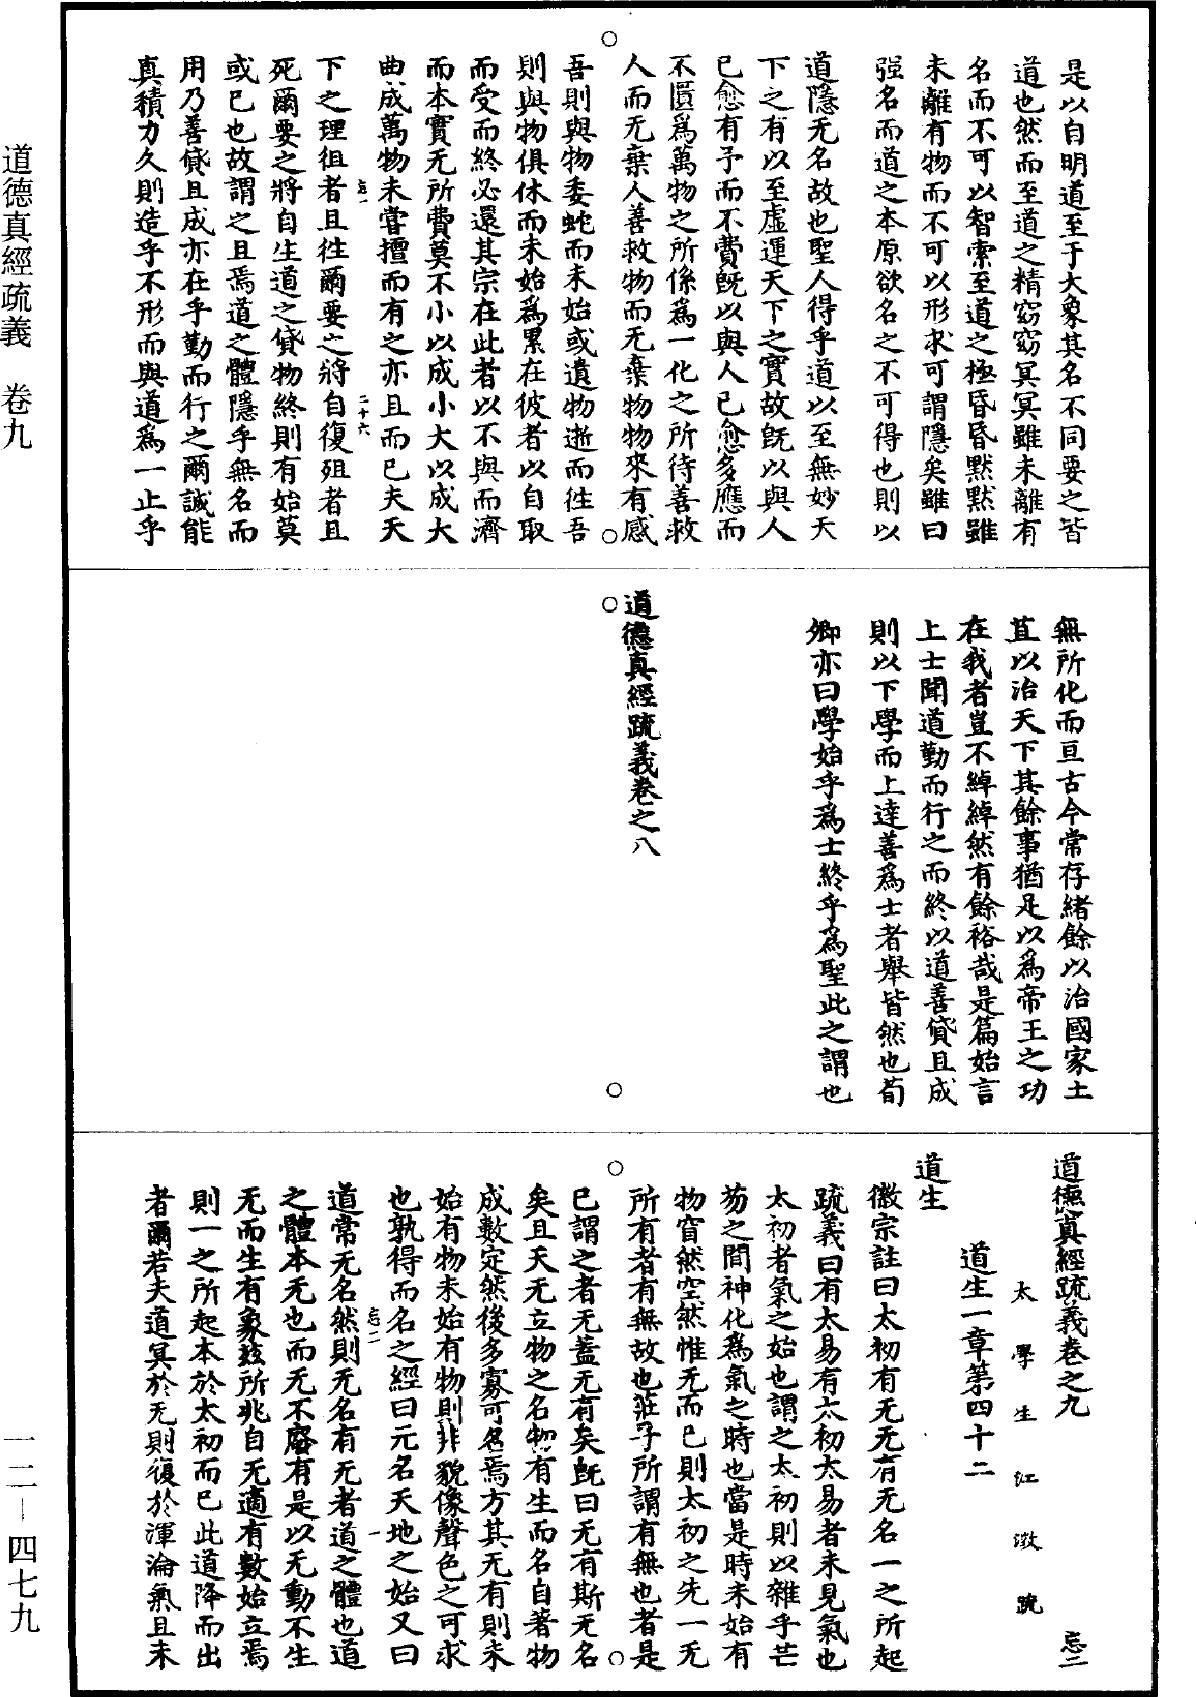 道德真經疏義　卷九
是以自明道至于大象其名不同要之皆
道也然而至道之精窈窈冥冥雖未離有
名而不可以智索至道之極昏昏默默雖
未離有物而不可以形求可謂隱矣雖曰
强名而道之本原欲名之不可得也則以
道隱无名故也聖人得乎道以至無妙天
下之有以至虛運天下之實故旣以與人
已愈有予而不費旣以與人已愈多應而
不匱爲萬物之所係爲一化之所待善救
人而无棄人善救物而无棄物物來有感
吾則與物委蛇而未始或遺物逝而徃吾
則與物俱休而未始爲累在彼者以自取
而受而終必還其宗在此者以不與而濟
而本實无所費莫不小以成小大以成大
曲成萬物未嘗擅而有之亦且而已夫天
下之理徂者且徃爾要之將自復殂者且
忘一　二十六
死爾要之將自生道之貸物終則有始莫
或已也故謂之且焉道之體隱乎無名而
用乃善貸且成亦在乎勤而行之爾誠能
真積力久則造乎不形而與道爲一止乎
無所化而亘古今常存緒餘以治國家土
苴以治天下其餘事猶足以爲帝王之功
在我者豈不綽綽然有餘裕哉是篇始言
上士聞道勤而行之而終以道善貸且成
則以下學而上達善爲士者舉皆然也荀
卿亦曰學始乎爲士終乎爲聖此之謂也
道德真經疏義卷之八
道德真經疏義卷之九　忘二
太學生江澂疏
道生一章第四十二
道生一
徽宗註曰太初有无无有无名一之所起
疏義曰有太易有太初太易者未見氣也
太初者氣之始也謂之太初則以雜乎芒
芴之間神化爲氣之時也當是時未始有
物窅然空然惟无而已則太初之先一无
所有者有無故也莊子所謂有無也者是
已謂之者无蓋无有矣旣曰无有斯无名
矣且天无立物之名物有生而名自著物
成數定然後多寡可名焉方其无有則未
始有物未始有物則非貌像聲色之可求
也孰得而名之經曰无名天地之始又曰
忘二　一
道常无名然則无名有无者道之體也道
之體本无也而无不廢有是以无動不生
无而生有象玆所兆自无適有數始立焉
則一之所起本於太初而已此道降而出
者爾若夫道冥於无則復於渾淪氣且未
一二—四七九